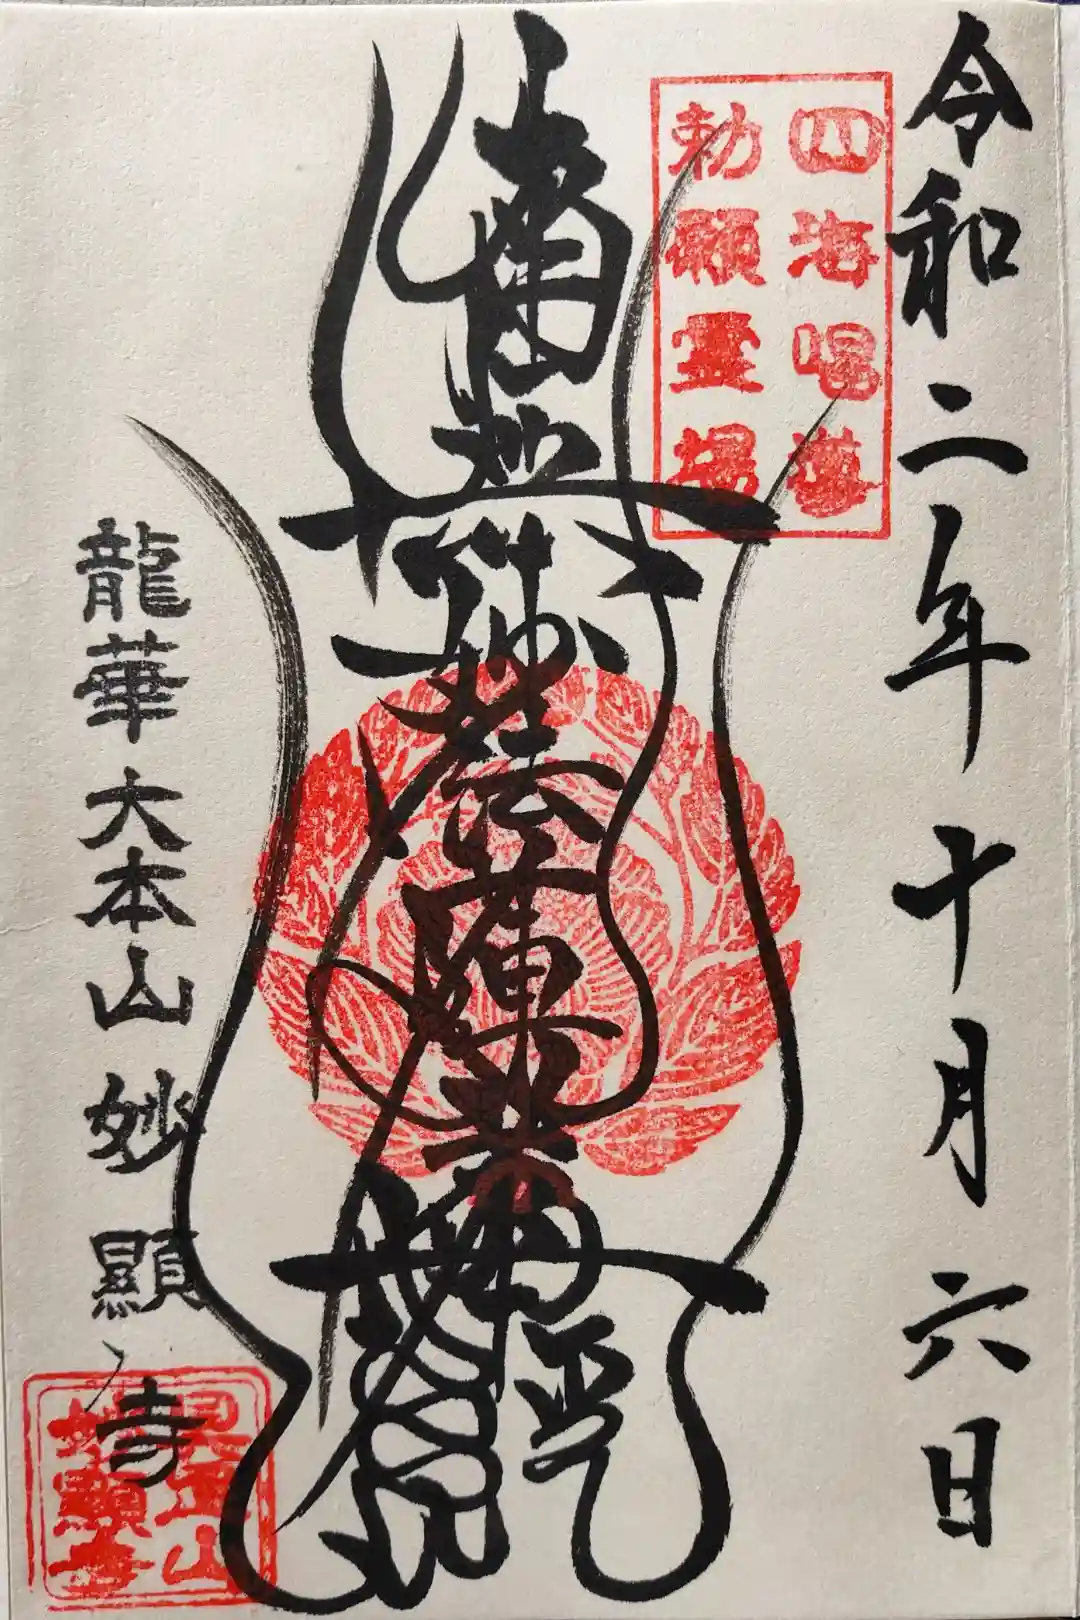 令和二年十月六日
四海唱導
勅願霊場
南無妙法蓮華經
龍華大本山妙顯寺
具足山
妙顯寺